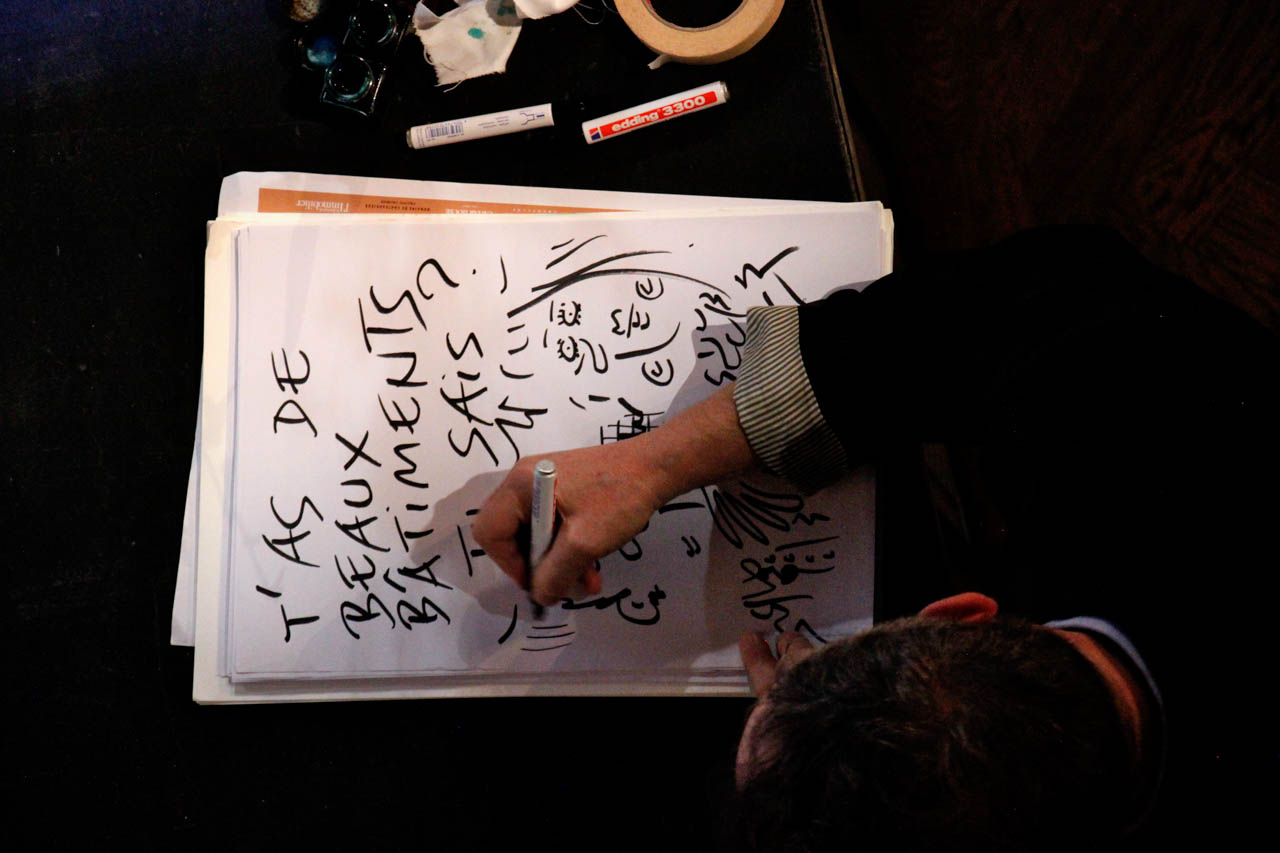 T'AS DE
BEAUX
BÂTIMENTS?
TU SAIS
edding 3300
l'Immobilier